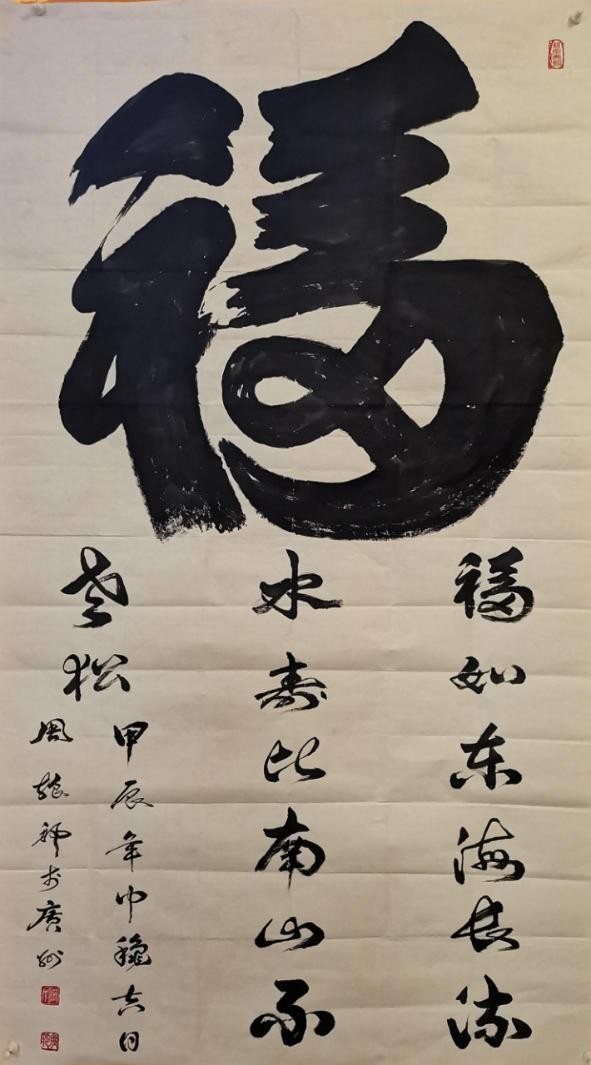 福
福如东海长流
水寿比南山不
老松
甲辰年中秋吉日
周龙书于广州